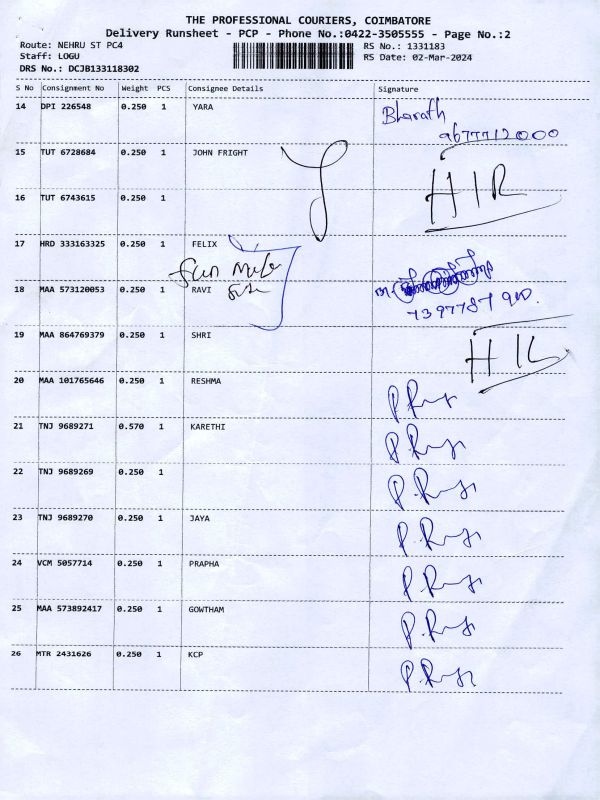 THE PROFESSIONAL COURIERS, COIMBATORE
Delivery Runsheet - PCP - Phone No.:0422-3505555 - Page No.:2
Route: NEHRU ST PC4 RS No.: 1331183
Staff: LOGU RS Date: 02-Mar-2024
DRS No.: DCJB133118302
S No Consignment No Weight PCS Consignee Details Signature
14 DPI 226548 0.250 1 YARA Bharath
9677712000
15 TUT 6728684 0.250 1 JOHN FRIGHT
16 TUT 6743615 0.250 1
17 HRD 333163325 0.250 1 FELIX
18 MAA 573120053 0.250 1 RAVI
19 MAA 864769379 0.250 1 SHRI
20 MAA 101765646 0.250 1 RESHMA
21 TNJ 9689271 0.570 1 KARETHI
22 TNJ 9689269 0.250 1
23 TNJ 9689270 0.250 1 JAYA
24 VCM 5057714 0.250 1 PRAPHA
25 MAA 573892417 0.250 1 GOWTHAM
26 MTR 2431626 0.250 1 KCP